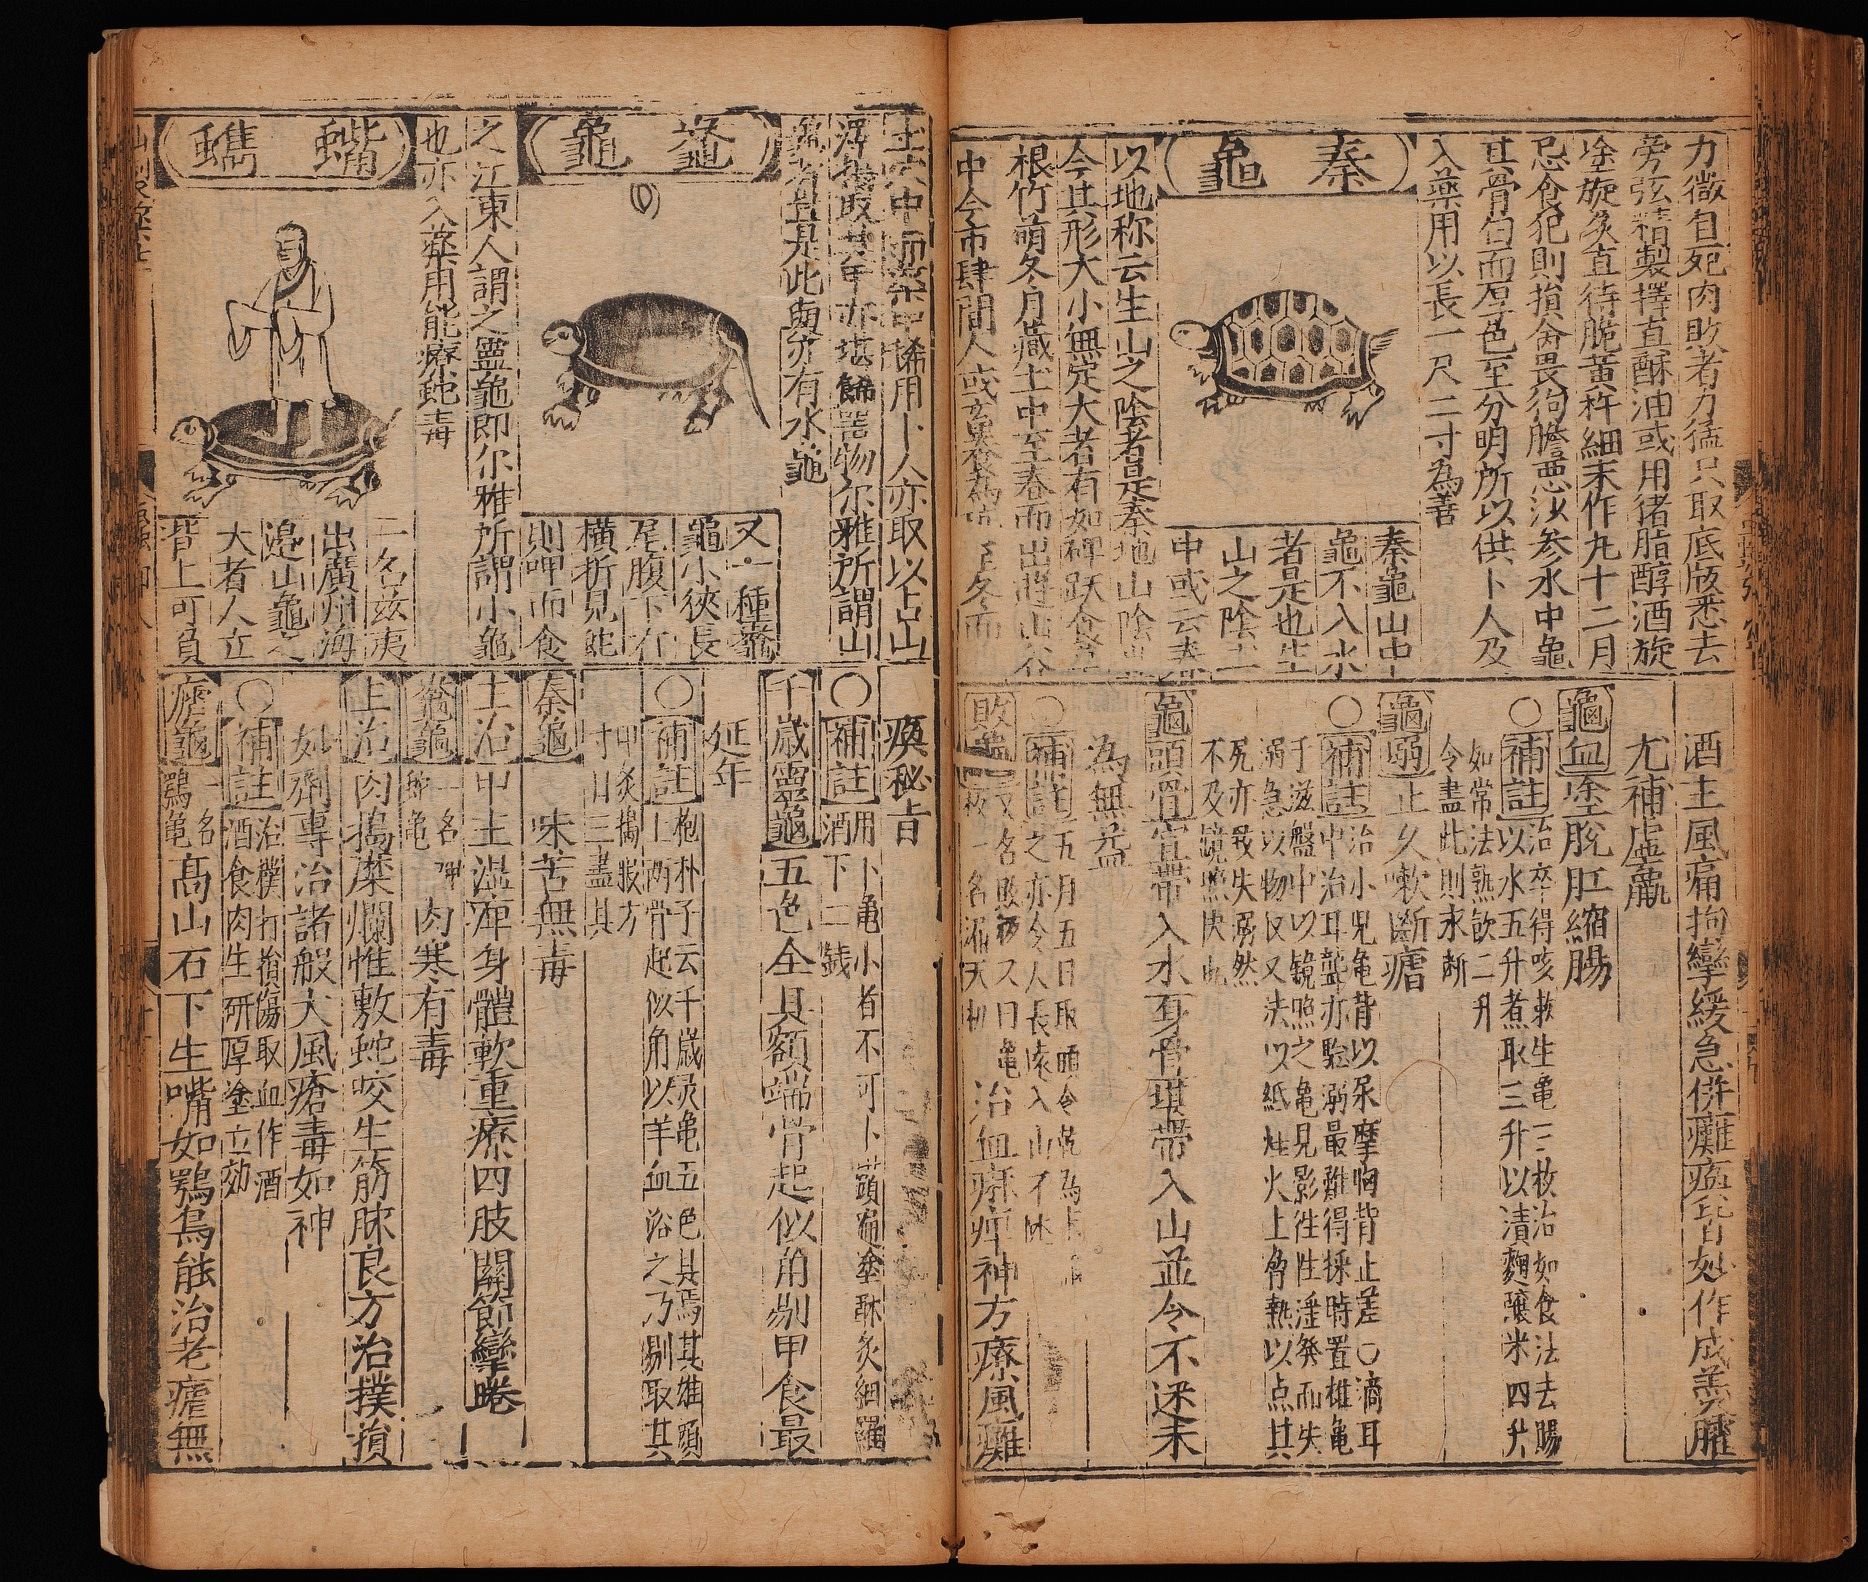 力微自死肉敗者力猛只取底版悉去
旁弦精製擇直酥油或用猪脂醇酒旋
塗旋炙直待脆黃杵細末作丸十二月
忌食犯則損命畏狗膽惡沙參水中龜
其骨白而厚色至分明所以供卜人及
入藥用以長一尺二寸為善
秦龜
秦龜山中
龜不入水
者是也生
山之陰土
中或云秦
以地称云生山之陰者是秦地山陰
今其形大小無定大者有如碑趺食
根竹萌冬月藏土中至春而出遊山谷
中今市肆間人或畜養為 至冬而
酒主風痛拘攣緩急併癱瘓 皆妙作成羹臛
尤補虛羸
龜血塗脫肛縮腸
○補註治卒得咳嗽生龜三枚治如食法去腸
以水五升煮取三升以漬麴釀米四升
如常法熟飲二升
令盡此則永斷
龜溺止久嗽斷瘧
○補註治小兒龜背以尿摩胸背止差○滴耳
中治耳聾亦騐溺最難得採時置雄龜
于滋盤中以镜照之龜見影往往滛發而失
溺急以物収又法以紙炷火上脅熱以点其
尻亦致失溺然
不及鏡照快也
龜頭骨宜帶入水身骨堪帶入山並令不迷未
為無益
○補註五月五日取頭令乾為末
之亦令人長遠入山不迷
敗龜 一名敗 又曰龜
板 一名漏天机
治血痳痺神方療風癱
土穴中而藥中稀用卜人亦取以占山
澤揭取其甲亦堪飾器物尔雅所謂山
龜者豈是此歟亦有水龜
鼈龜
又一種鼈
龜小狹長
尾腹下有
橫折見蛇
則呷而食
之江東人謂之靈龜即尔雅所謂小龜
也亦入藥用能療蛇毒
蠵蟕
一名兹夷
出廣州海
邉山龜之
大者人立
背上可負
瘓秘旨
○補註用卜龜小者不可卜 遍塗酥炙細羅
酒下二錢
千歲靈龜五色全具額端骨起似角剮甲食最
延年
○補註抱朴子云千歲灵龜五色具焉其雄頭
上两骨起似角以羊血浴之乃剔取其
甲炙搗服方
寸日三盡其
秦龜 味苦無毒
主治甲主温痺身體軟重療四肢關節攣踡
鼈龜一名呷
虵龜肉寒有毒
主治肉搗糜爛惟敷蛇咬生筋脉良方治撲損
如劑專治諸般大風瘡毒如神
○補註治撲打損傷取血作酒
酒食肉生研厚塗立効
瘧龜一名
鶚龜高山石下生嘴如鶚鳥能治老瘧無